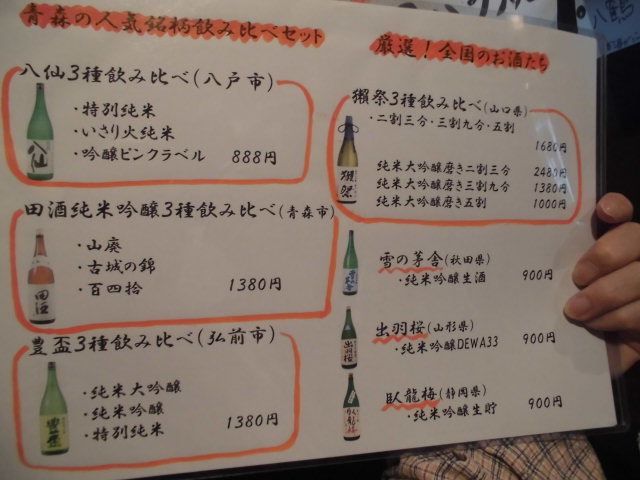 青森の人気銘柄飲み比べセット
八仙3種飲み比べ(八戸市)
・特別純米
・いさり火純米
・吟醸ピンクラベル 888円
八仙
田酒純米吟醸3種飲み比べ(青森市)
・山廃
・古城の錦
・百四拾 1380円
田酒
豊盃3種飲み比べ(弘前市)
・純米大吟醸
・純米吟醸
・特別純米 1380円
厳選!全国のお酒たち
獺祭3種飲み比べ(山口県)
・二割三分・三割九分・五割
1680円
純米大吟醸磨き二割三分 2480円
純米大吟醸磨き三割九分 1380円
純米大吟醸磨き五割 1000円
獺祭
雪の茅舎(秋田県)
・純米吟醸生酒 900円
出羽桜(山形県)
・純米吟醸DEWA33 900円
出羽桜
臥龍梅(静岡県)
・純米吟醸生貯 900円
臥龍梅
八鶴